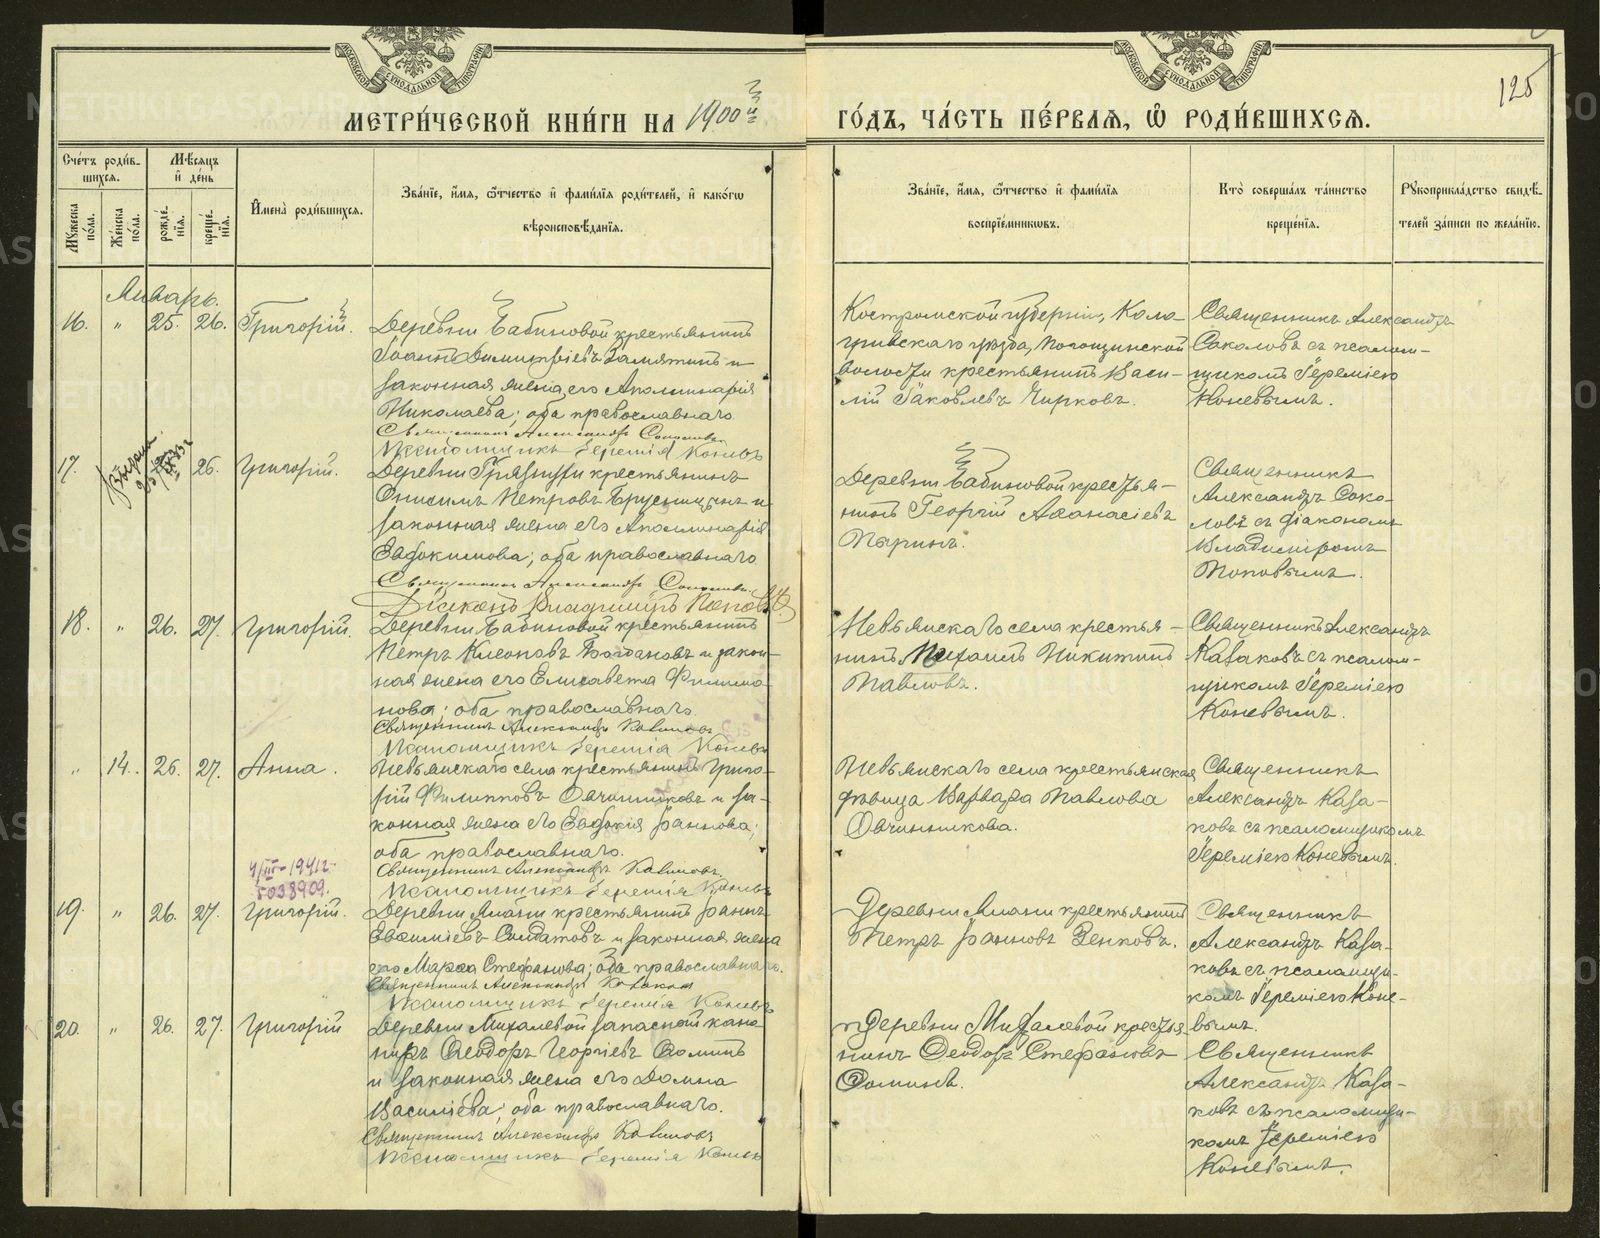 МЕТРИ́ЧЕСКОЙ КНИ́ГИ НА 1900й
ГО́ДЪ, ЧА́СТЬ ПЕ́РВАЯ, Ѽ РОДИ́ВШИХСЯ.
125
Сче́тъ роди́в-
шихся.
Мѣ́сяцъ
и҆ де́нь
Му́жеска по́ла.
Же́нска по́ла.
рожде́-нїѧ.
креще́-нїѧ.
И҆мена̀ роди́вшихся.
Зва́нїе, и҆́мя, ѻ҆́тчество и҆ фами́лїя роди́телей, и҆ како́гѡ
вѣроисповѣ́данїя.
Зва́нїе, и҆́мя, ѻ҆́тчество и҆ фами́лїя
воспрїе́мникѡвъ.
Кто̀ соверша́лъ та́инство
креще́нїя.
Рꙋкоприкла́дство свидѣ́-
телей за́писи по жела́нїю.
Январь.
16. " 25. 26. Григорій.
Деревни Бабиновой крестьянинъ
Іоаннъ Димитріевъ Замятинъ и
законная жена его Аполлинарія
Николаева; оба православнаго.
Священникъ Александръ Соколовъ
Псаломщикъ Іеремія Коневъ
Костромской губерніи, Коло-
гривскаго уѣзда,
волости крестьянинъ Васи-
лій Іаковлевъ Чирковъ.
Священникъ Александръ
Соколовъ съ псалом-
щикомъ Іереміею
Коневымъ.
17. 26. Григорій.
Деревни Грязнухи крестьянинъ
Онисимъ Петровъ Брусницынъ и
законная жена его Аполлинарія
Евдокимова; оба православнаго
Священникъ Александръ Соколовъ
Діаконъ Владиміръ Поповъ
Деревни Бабиновой крестья-
нинъ Георгій Аѳанасіевъ
Пыринъ.
Священникъ
Александръ Соко-
ловъ съ діакономъ
Владиміромъ
Поповымъ.
18. " 26. 27. Григорій.
Деревни Бабиновой крестьянинъ
Петръ Клеоповъ Богдановъ и закон-
ная жена его Елисавета Филимо-
нова; оба православнаго.
Священникъ Александръ Казаковъ
Псаломщикъ Іеремія Коневъ
Невьянскаго села крестья-
нинъ Михаилъ Никитинъ
Павловъ.
Священникъ Александръ
Казаковъ съ псалом-
щикомъ Іереміею
Коневымъ.
" 14. 26. 27. Анна.
Невьянскаго села крестьянинъ Григо-
рій Филипповъ Овчинниковъ и за-
конная жена его Евдокія Іоаннова;
оба православнаго.
Священникъ Александръ Казаковъ.
Псаломщикъ Іеремія Коневъ
Невьянскаго села крестьянская
дѣвица Варвара Павлова
Овчинникова.
Священникъ
Александръ Каза-
ковъ съ псаломщикомъ
Іереміею Коневымъ.
4/III-1941г.
5038909.
19. " 26. 27. Григорій.
Деревни Ялани крестьянинъ Іоаннъ
Евѳиміевъ Солдатовъ и законная жена
его Марѳа Стефанова; оба православнаго.
Священникъ Александръ Казаковъ
Псаломщикъ Іеремія Коневъ
Деревни Ялани крестьянинъ
Петръ Іоанновъ Зенковъ.
Священникъ
Александръ Каза-
ковъ съ псаломщи-
комъ Іереміею Коне-
вымъ.
20. " 26. 27. Григорій
Деревни Михалевой запасной кано-
ниръ Ѳеодоръ Георгіевъ Ѳоминъ
и законная жена его Домна
Василіева; оба православнаго.
Священникъ Александръ Казаковъ
Псаломщикъ Іеремія Коневъ
Деревни Михалевой крестья-
нинъ Ѳеодоръ Стефановъ
Ѳоминъ.
Священникъ
Александръ Каза-
ковъ съ псаломщи-
комъ Іереміею
Коневымъ.